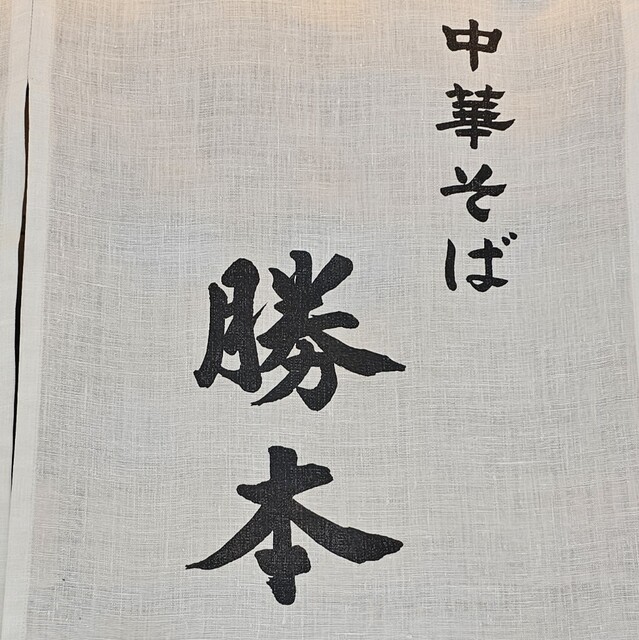 中華そば
勝本